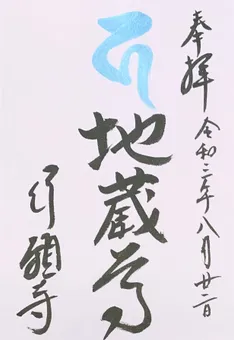 奉拝 令和三年八月廿二日
地蔵尊
行願寺